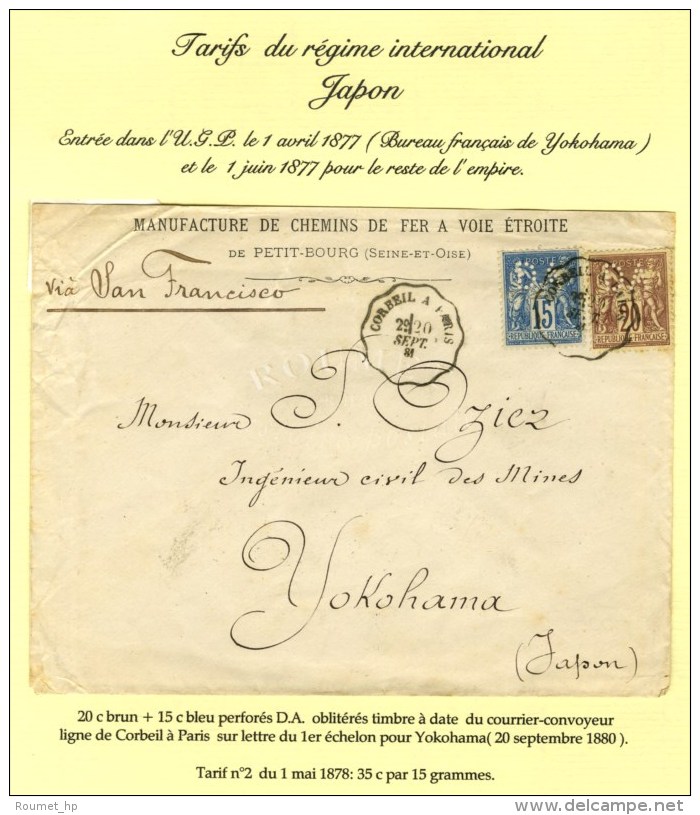 Tarifs du régime international
Japon
Entrée dans l'U.G.P. le 1 avril 1877 ( Bureau français de Yokohama )
et le 1 juin 1877 pour le reste de l'empire.
MANUFACTURE DE CHEMINS DE FER A VOIE ÉTROITE
DE PETIT-BOURG (SEINE-ET-OISE)
viâ San Francisco
CORBEIL A PARIS
20
SEPT.
81
POSTES
15
REPUBLIQUE FRANÇAISE
20
REPUBLIQUE FRANÇAISE
Monsieur P. Oziez
Ingénieur civil des Mines
Yokohama
(Japon)
20 c brun + 15 c bleu perforés D.A. oblitérés timbre à date du courrier-convoyeur
ligne de Corbeil à Paris sur lettre du 1er échelon pour Yokohama( 20 septembre 1880 ).
Tarif n°2 du 1 mai 1878: 35 c par 15 grammes.
Roumet_hp
© delcampe.net